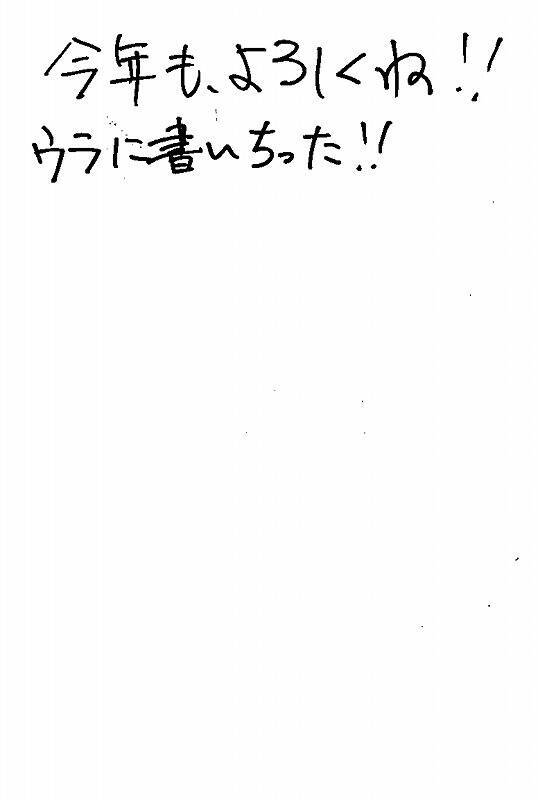 今年も、よろしくね!!
ウラに書いちった!!